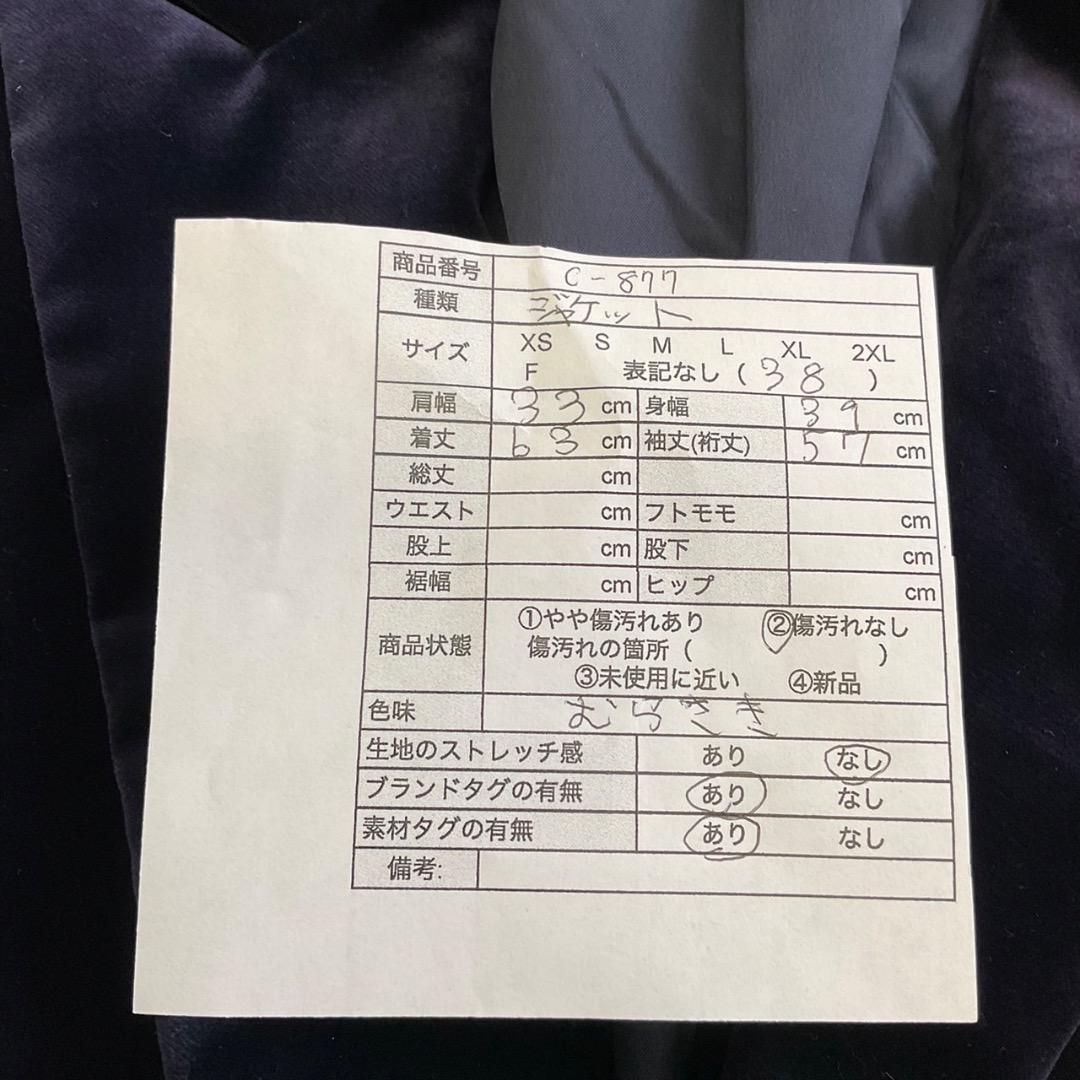 商品番号 C-877
種類 ジャケット
サイズ XS S M L XL 2XL
F 表記なし ( 38 )
肩幅 33 cm 身幅 39 cm
着丈 63 cm 袖丈(裄丈) 57 cm
総丈 cm
ウエスト cm フトモモ cm
股上 cm 股下 cm
裾幅 cm ヒップ cm
商品状態 ①やや傷汚れあり ②傷汚れなし
傷汚れの箇所 ( )
③未使用に近い ④新品
色味 むらさき
生地のストレッチ感 あり なし
ブランドタグの有無 あり なし
素材タグの有無 あり なし
備考: